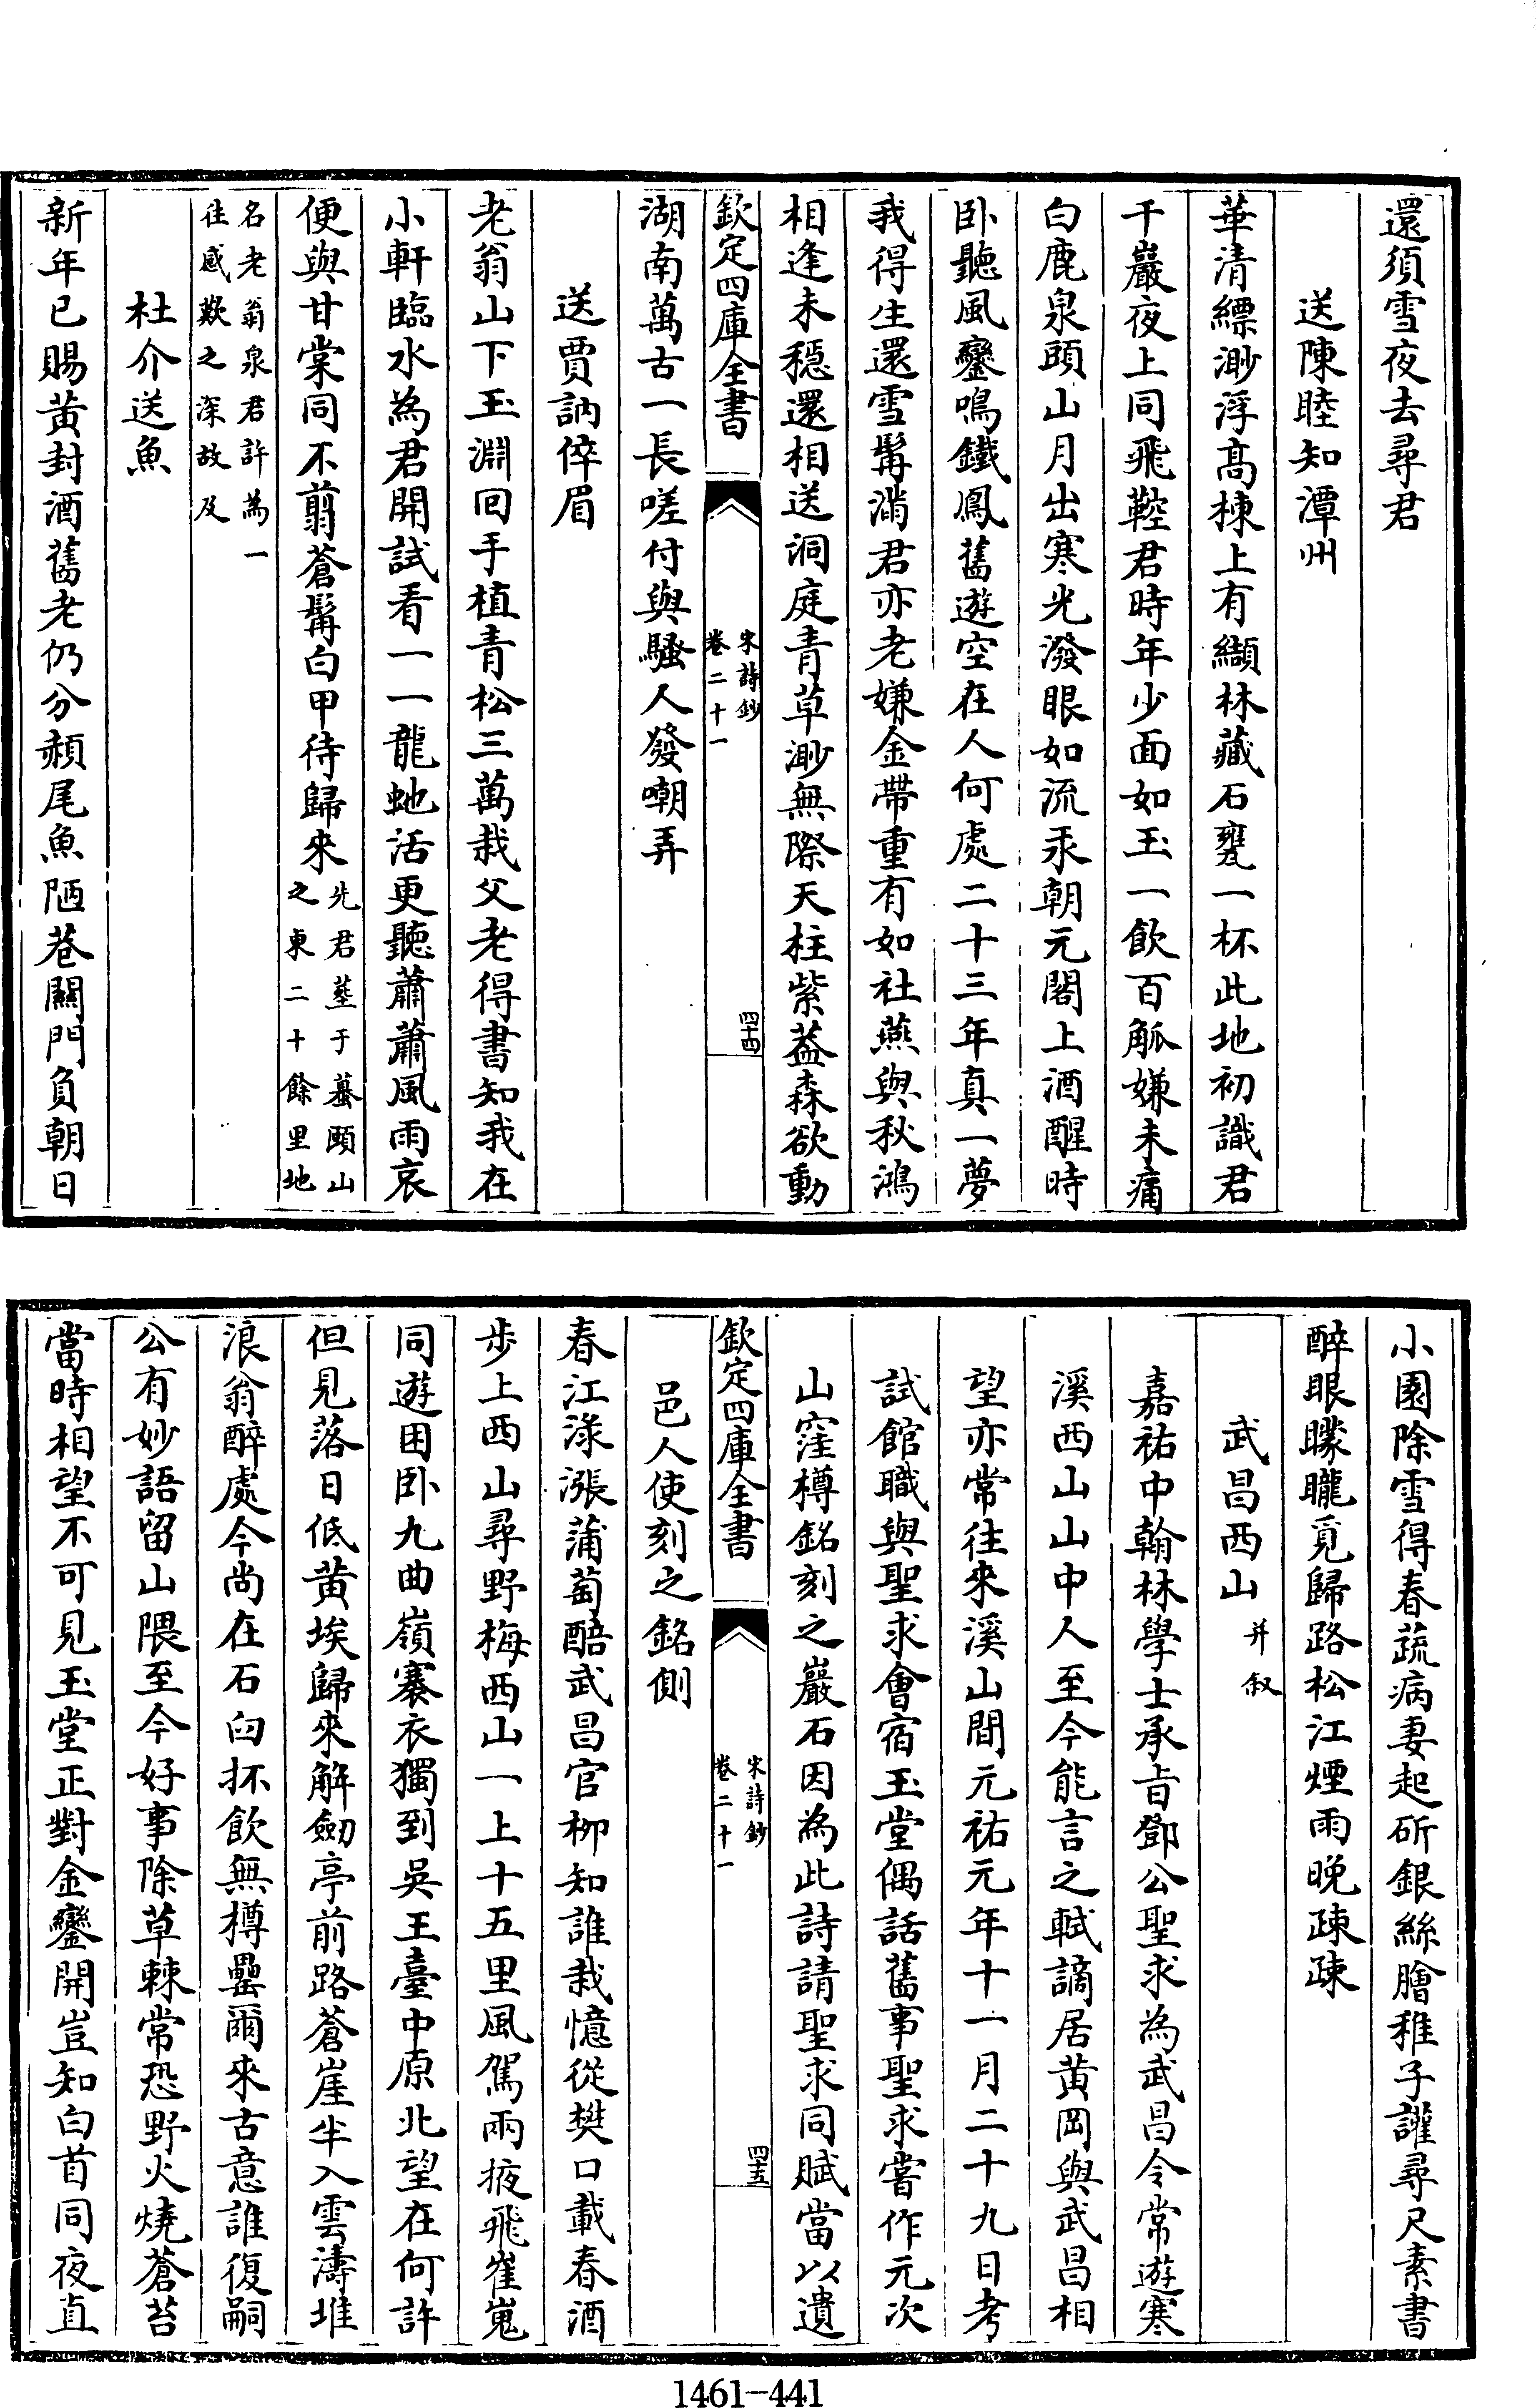 還須雪夜去尋君
送陳睦知潭州
華清縹渺浮高棟上有纈林藏石甕一杯此地初識君
千巖夜上同飛鞚君時年少面如玉一飲百觚嫌未痛
白鹿泉頭山月出寒光潑眼如流汞朝元閣上酒醒時
卧聽風鑾鳴鐵鳳舊遊空在人何處二十三年真一夢
我得生還雪髯滿君亦老嫌金帶重有如社燕與秋鴻
相逢未穩還相送洞庭青草渺無際天柱紫蓋森欲動
欽定四庫全書
宋詩鈔
卷二十一
四十四
湖南萬古一長嗟付與騷人發嘲弄
送賈訥倅眉
老翁山下玉淵回手植青松三萬栽父老得書知我在
小軒臨水為君開試看一一龍蛇活更聽蕭蕭風雨哀
便與甘棠同不翦蒼髯白甲待歸來先君塟于蟇頤山
之東二十餘里地
名老翁泉君許為一
往感歎之深故及
杜介送魚
新年已賜黄封酒舊老仍分赬尾魚陋巷關門負朝日
小園除雪得春蔬病妻起斫銀絲膾稚子讙尋尺素書
醉眼矇矓覓歸路松江煙雨晚疎疎
武昌西山并叙
嘉祐中翰林學士承㫖鄧公聖求為武昌令常遊寒
溪西山山中人至今能言之軾謫居黄岡與武昌相
望亦常往來溪山間元祐元年十一月二十九日考
試館職與聖求會宿玉堂偶話舊事聖求嘗作元次
山窪樽銘刻之巖石因為此詩請聖求同賦當以遺
欽定四庫全書
宋詩鈔
卷二十一
四十五
邑人使刻之銘側
春江淥漲蒲萄醅武昌官柳知誰栽憶從樊口載春酒
步上西山尋野梅西山一上十五里風駕兩掖飛崔嵬
同遊困卧九曲嶺褰衣獨到吳王臺中原北望在何許
但見落日低黄埃歸來解劒亭前路蒼崖半入雲濤堆
浪翁醉處今尚在石臼抔飲無樽罍爾來古意誰復嗣
公有妙語留山隈至今好事除草棘常恐野火燒蒼苔
當時相望不可見玉堂正對金鑾開豈知白首同夜直
1461-441